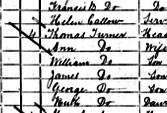 Francis D. Do Do
Helen Callow Serv
4 Thomas Turner Head
Ann Do Wife
William Do Son
James Do Son
George Do Son
Ruth Do Daur